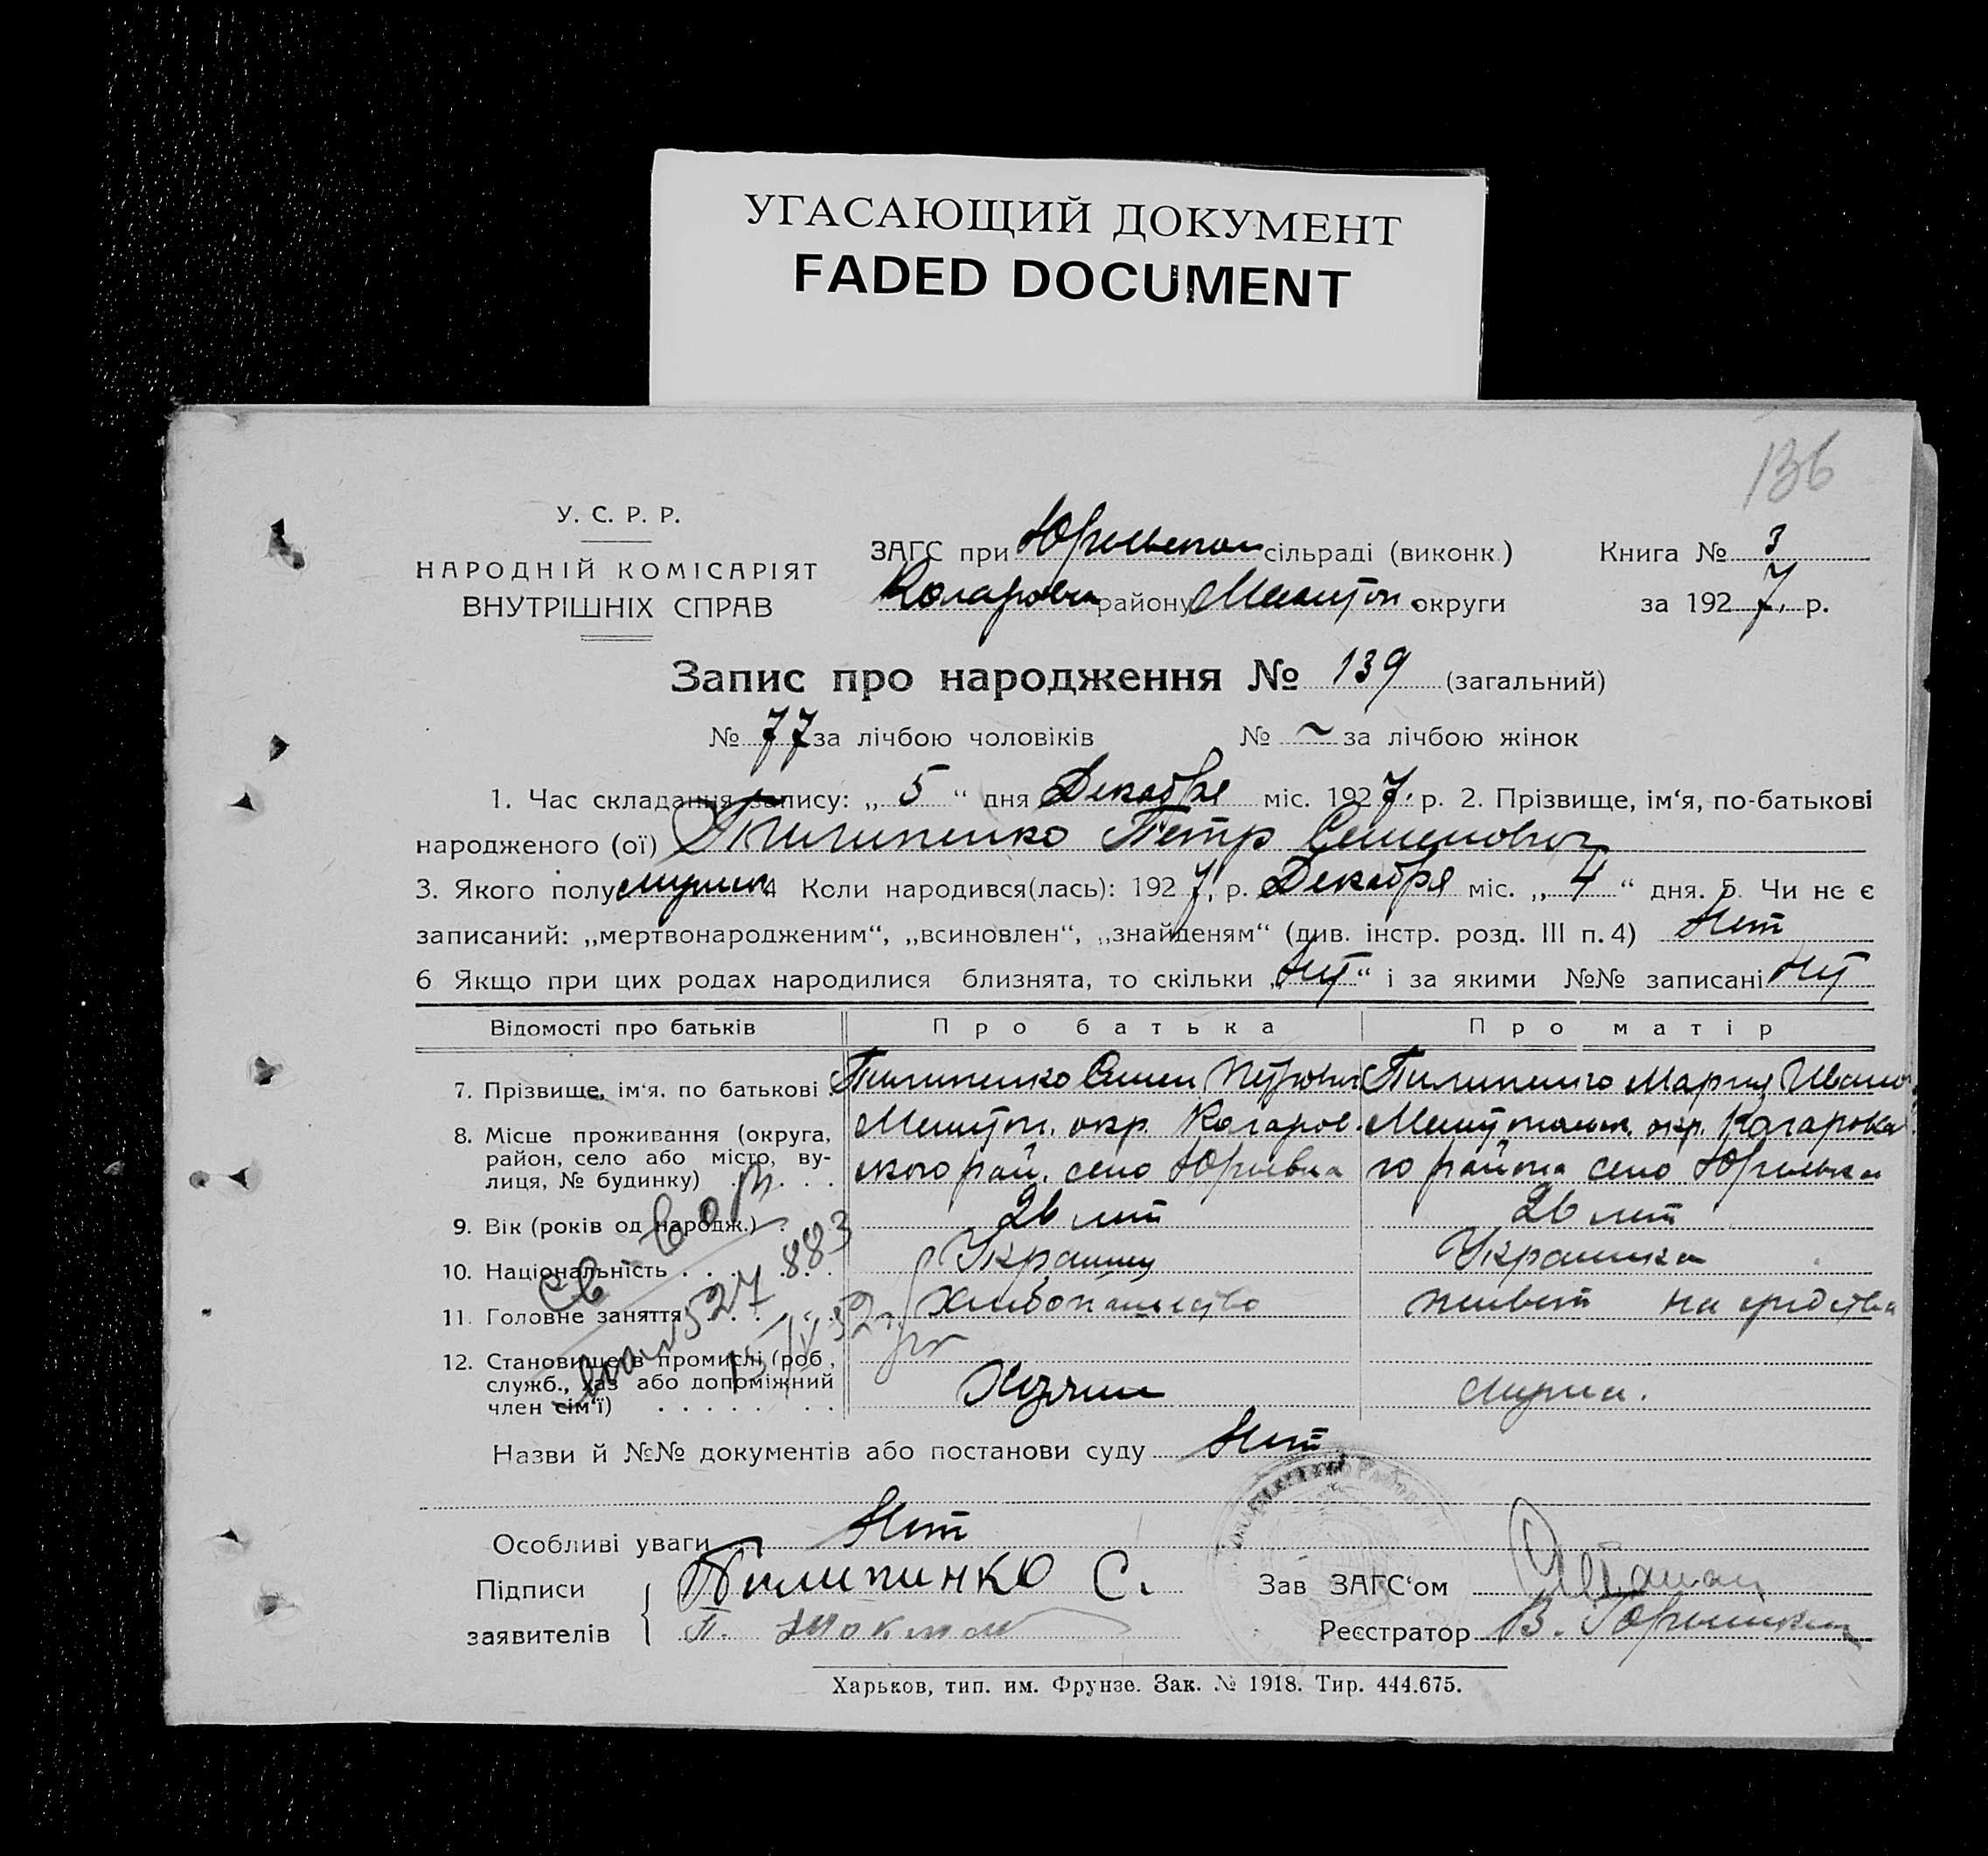 УГАСАЮЩИЙ ДОКУМЕНТ
FADED DOCUMENT
136
У. С. Р. Р.
НАРОДНІЙ КОМІСАРІЯТ
ВНУТРІШНІХ СПРАВ
ЗАГС при сільраді (виконк.)
району округи
Книга № 3
за 1927 р.
Запис про народження № 139 (загальний)
№ 77 за лічбою чоловіків № ~ за лічбою жінок
1. Час складання запису: „ 5 “ дня Декабря міс. 1927 р. 2. Прізвище, ім‘я, по-батькові
народженого (ої) Пилипенко Петр Семенович
3. Якого полу 4 Коли народився(лась): 1927 р. Декабря міс. „ 4 “ дня. 5. Чи не є
записаний: „мертвонародженим“, „всиновлен“, „знайденям“ (див. інстр. розд. III п. 4) Нет
6 Якщо при цих родах народилися близнята, то скільки „Нет“ і за якими №№ записані Нет
Відомості про батьків Про батька Про матір
7. Прізвище, ім‘я, по батькові . Пилипенко Семен Петрович Пилипенко Мария
8. Місце проживання (округа, окр. окр.
район, село або місто, ву- ского рай. село го района село
лиця, № будинку) . . . .
9. Вік (років од народж.) . . 26 лет 26 лет
10. Національність . . . . . Украинец Украинка
11. Головне заняття . . . . Хлебопашество живет на средства
12. Становище в промислі (роб.,
служб., хаз або допоміжний Хозяин мужа.
член сім‘ї) . . . . . . .
св-во
527883
15/IV 52 г.
Назви й №№ документів або постанови суду Нет
Особливі уваги Нет
Підписи
заявителів
Пилипинко С.
П.
Зав ЗАГС‘ом
Реєстратор В.
Харьков, тип. им. Фрунзе. Зак. № 1918. Тир. 444.675.